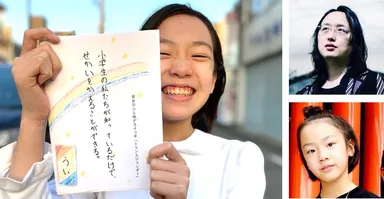 小学生の私たちが知っているだけで、
せかいをかえることができる。
うい